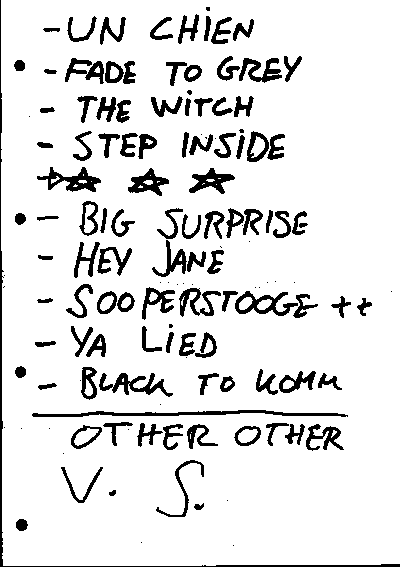 - UN CHIEN
- FADE TO GREY
- THE WITCH
- STEP INSIDE
- BIG SURPRISE
- HEY JANE
- SOOPERSTOOGE ++
- YA LIED
- BLACK TO KOMM
OTHER OTHER
V. S.